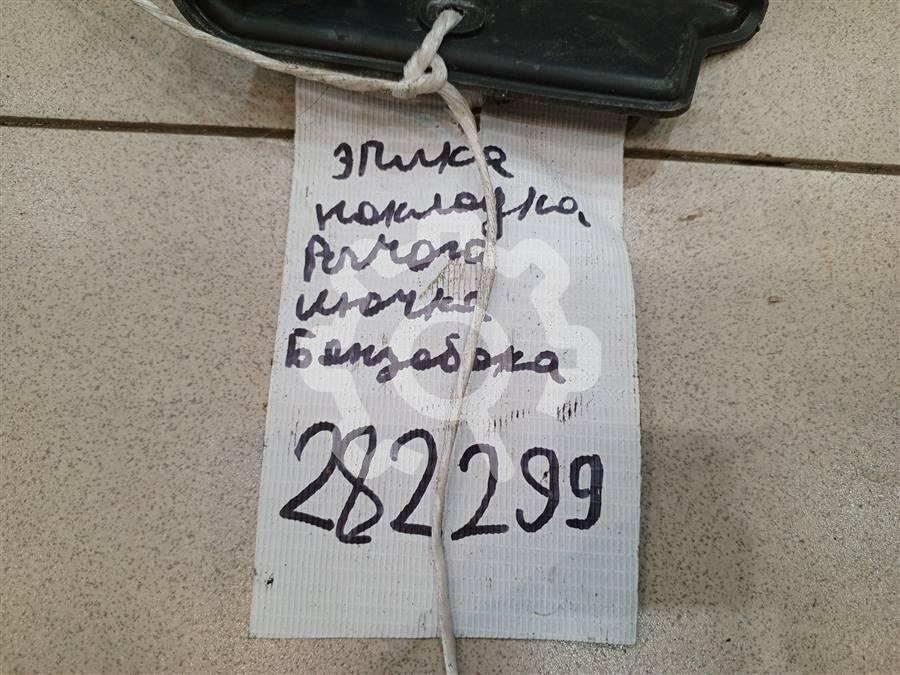 эпика
накладка
Рычага
лючка
Бензобака
282299